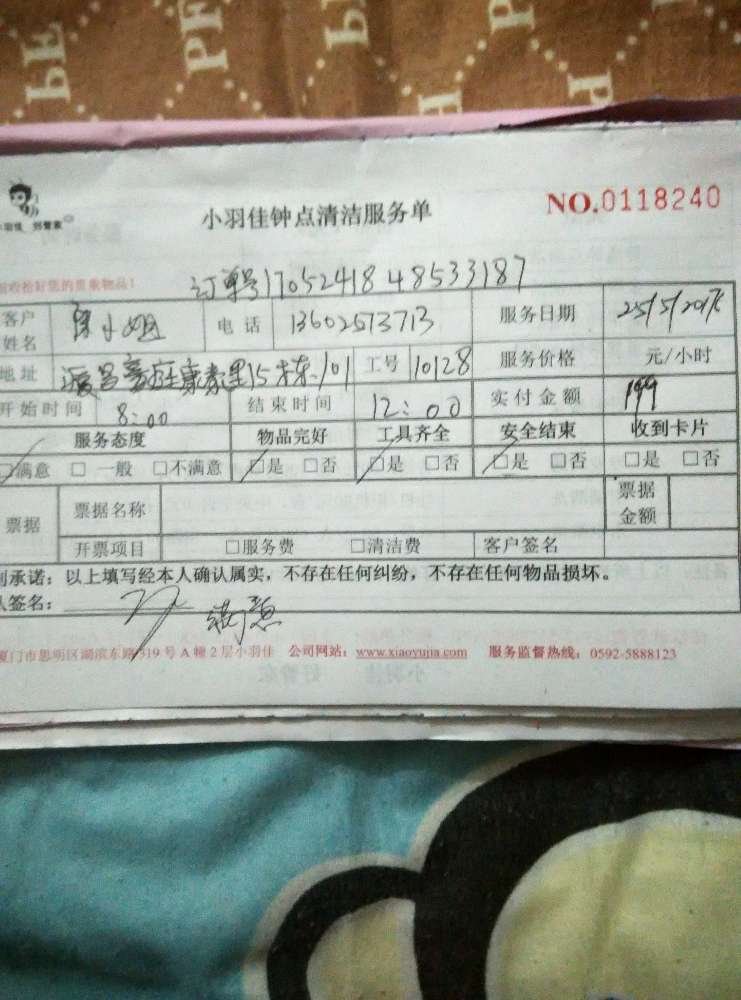 小羽佳钟点清洁服务单 NO.0118240
收拾好您的贵重物品!
订单号17052418 48533187
客户姓名 小姐 电话 13602573713 服务日期 25/5/2017
地址 15栋101 工号 10128 服务价格 元/小时
开始时间 8:00 结束时间 12:00 实付金额 199
服务态度 物品完好 工具齐全 安全结束 收到卡片
☑满意 □一般 □不满意 ☑是 □否 ☑是 □否 ☑是 □否 □是 □否
票据 票据名称 票据金额
开票项目 □服务费 □清洁费 客户签名
承诺：以上填写经本人确认属实，不存在任何纠纷，不存在任何物品损坏。
签名： 满意
厦门市思明区湖滨东路319号A幢2层小羽佳 公司网站：www.xiaoyujia.com 服务监督热线：0592-5888123